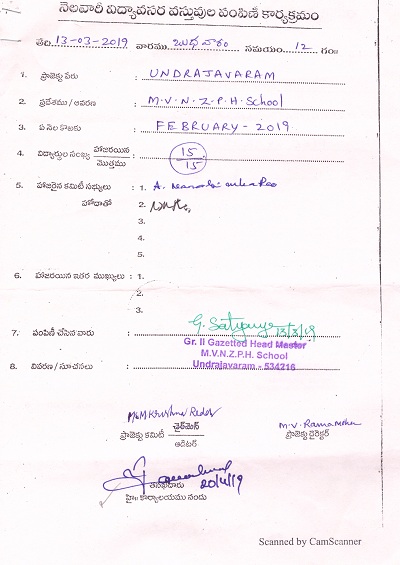 నెలవారీ విద్యావసర వస్తువుల పంపిణీ కార్యక్రమం
తేది. 13-03-2019 వారము. బుధవారం సమయం. 12 గం॥
1. ప్రాజెక్టు పేరు : UNDRAJAVARAM
2. ప్రదేశము / ఆవరణ : M.V.N.Z.P.H School
3. ఏ నెల కొఱకు : FEBRUARY - 2019
4. విద్యార్థుల సంఖ్య హాజరయిన / మొత్తము : 15 / 15
5. హాజరైన కమిటీ సభ్యులు : 1. A.
హోదాతో 2.
3.
4.
5.
6. హాజరయిన ఇతర ముఖ్యులు : 1.
2.
3.
G. Satyanarayana 13/3/19
7. పంపిణీ చేసిన వారు :
Gr. II Gazetted Head Master
M.V.N.Z.P.H. School
8. వివరణ / సూచనలు : Undrajavaram - 534216
M&M Krishna Reddy
M.V. Ramamohan
ప్రాజెక్టు కమిటీ ఛైర్మెన్ / ఆడిటర్
ప్రాజెక్టు డైరెక్టర్
20/4/19
తనిఖీదారు
హై॥ కార్యాలయము నందు
Scanned by CamScanner